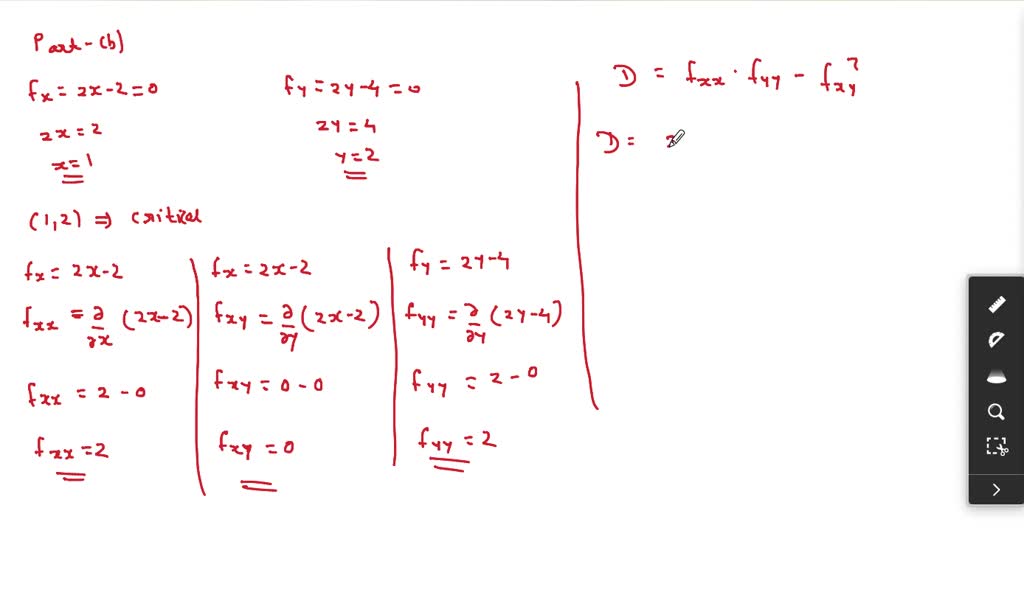 Part-(b)
fx = 2x-2=0
2x=2
x=1
fy=2y-4=0
2y=4
y=2
(1,2) ⇒ critical
fx= 2x-2
fxx = ∂/∂x (2x-2)
fxx = 2-0
fxx=2
fx=2x-2
fxy = ∂/∂y (2x-2)
fxy=0-0
fxy=0
fy = 2y-4
fyy = ∂/∂y (2y-4)
fyy = 2-0
fyy=2
D = fxx·fyy - fxy²
D=